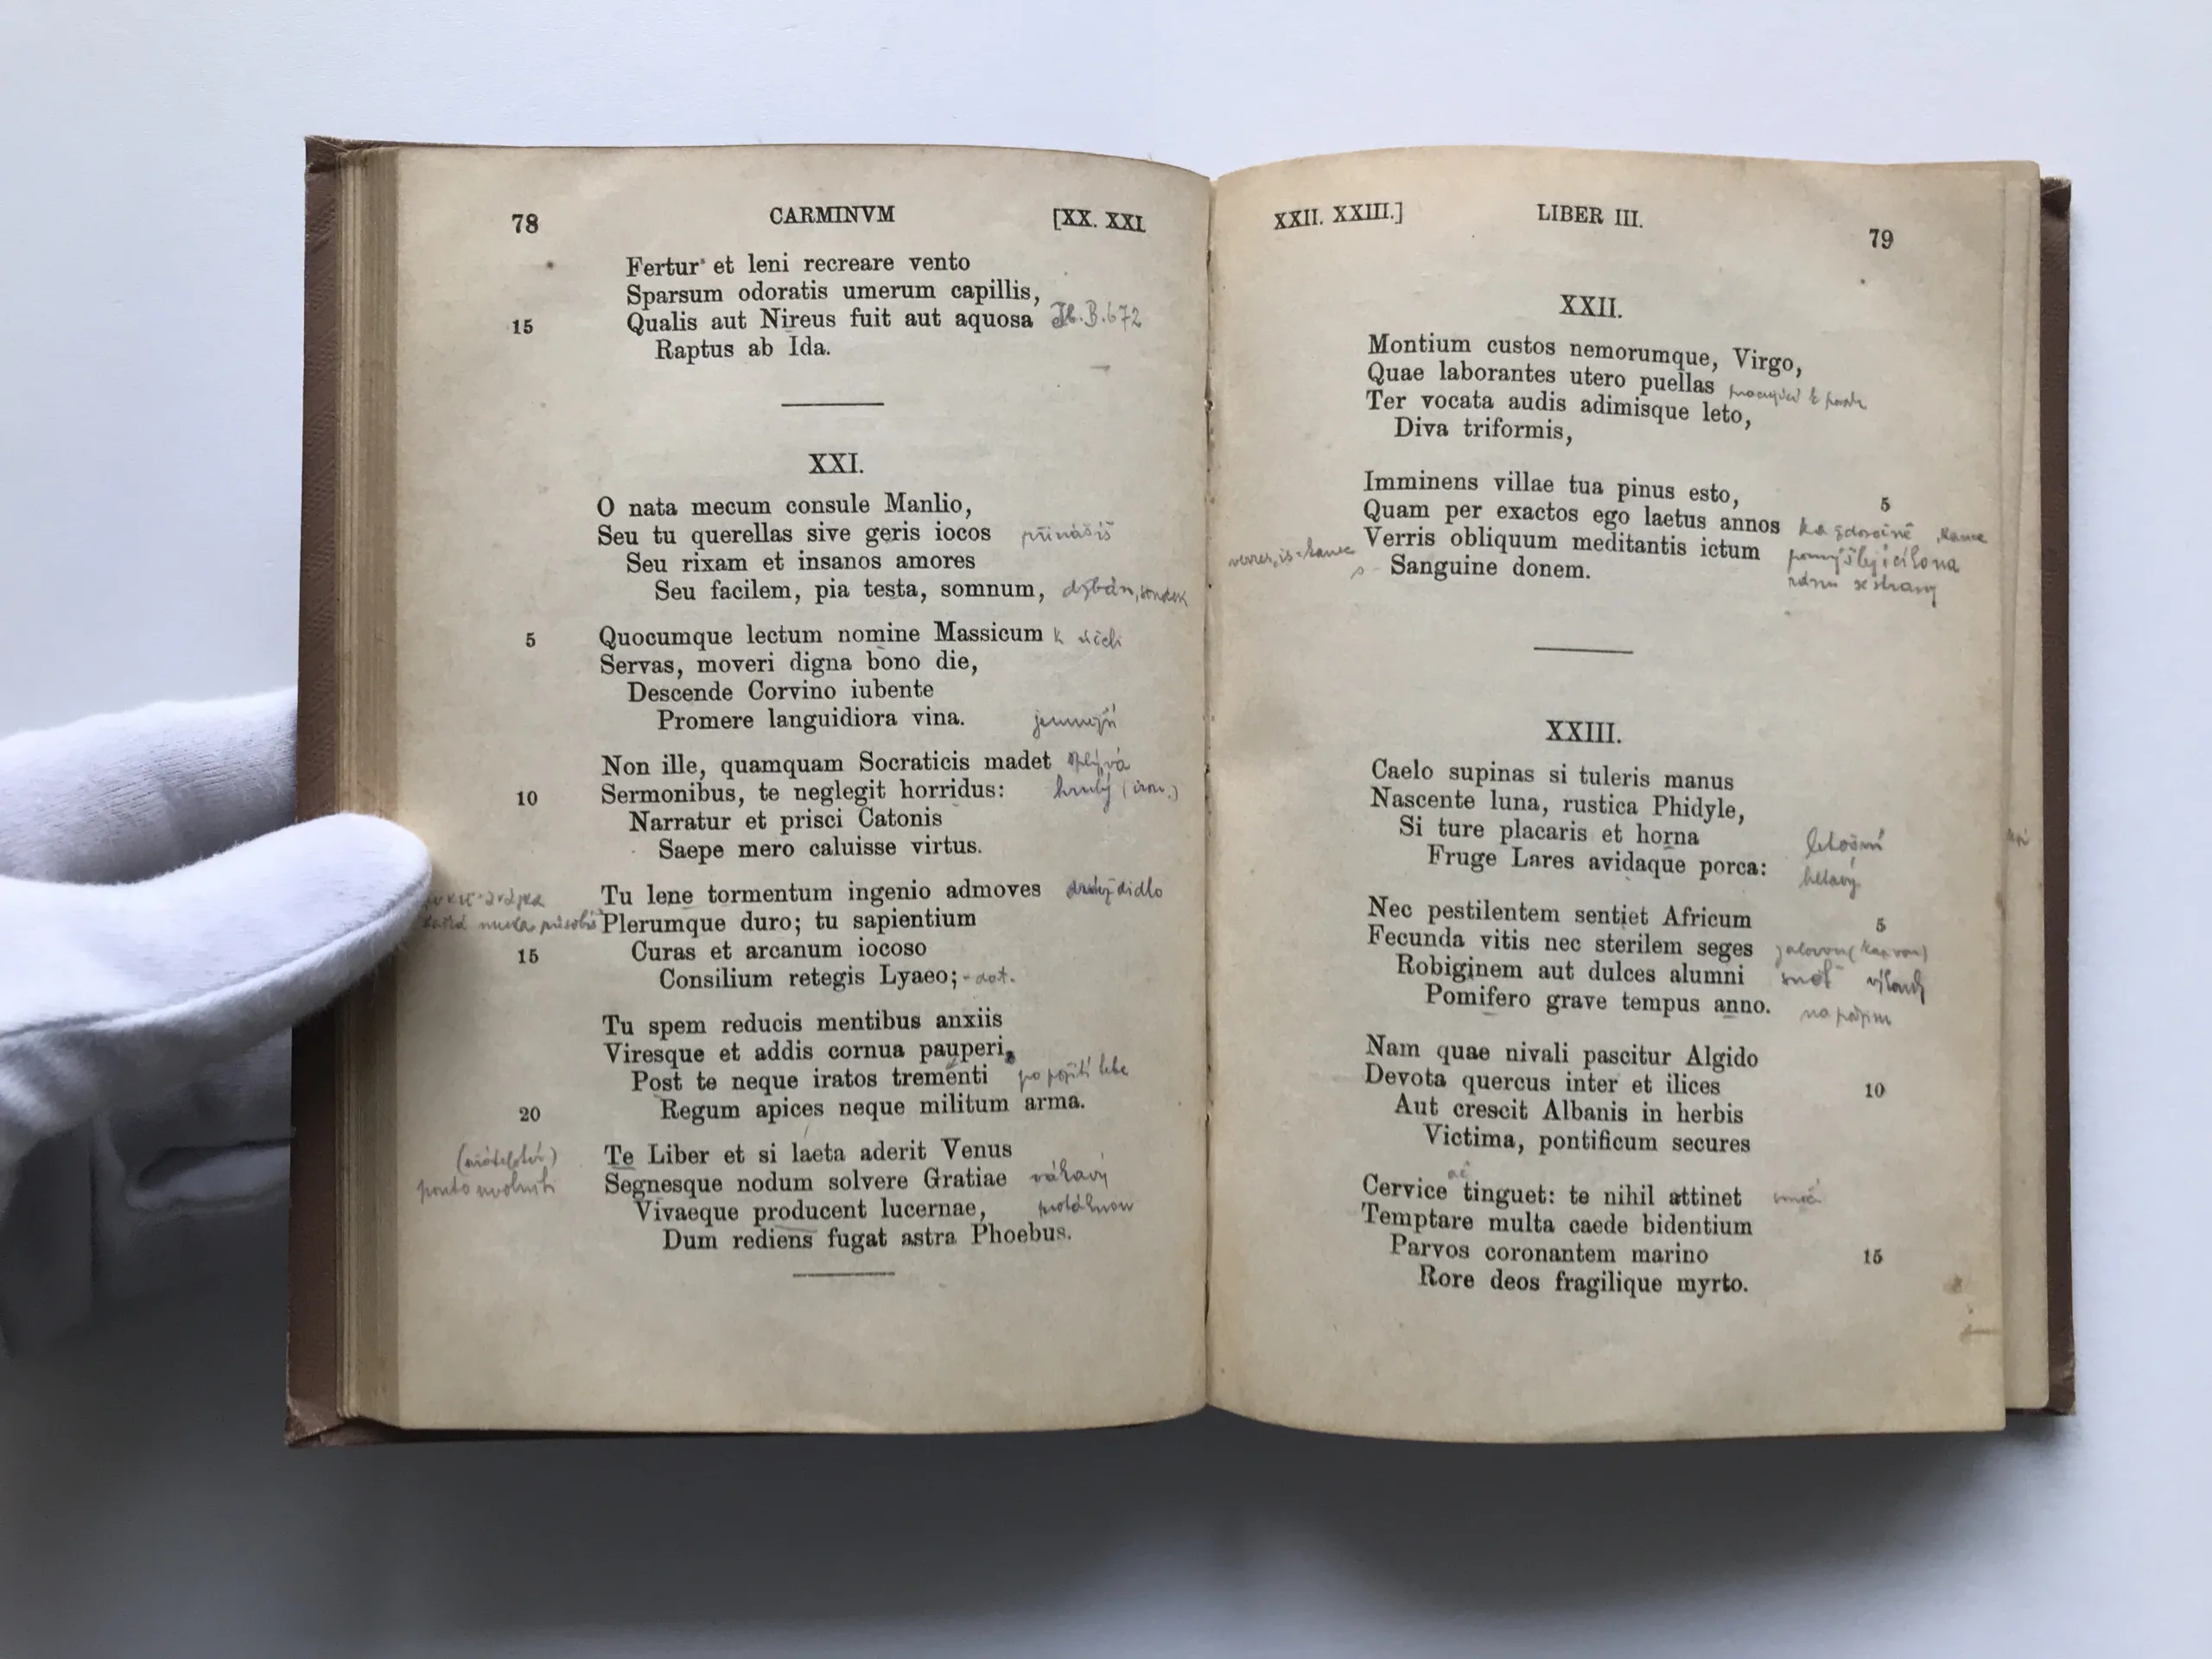 78 CARMINVM [XX. XXI.
Fertur et leni recreare vento
Sparsum odoratis umerum capillis,
15 Qualis aut Nireus fuit aut aquosa Il. B. 672
Raptus ab Ida.
XXI.
O nata mecum consule Manlio,
Seu tu querellas sive geris iocos přinášíš
Seu rixam et insanos amores
Seu facilem, pia testa, somnum, džbán, soudek
5 Quocumque lectum nomine Massicum k účeli
Servas, moveri digna bono die,
Descende Corvino iubente
Promere languidiora vina. jemnější
Non ille, quamquam Socraticis madet oplývá
10 Sermonibus, te neglegit horridus: hrubý (iron.)
Narratur et prisci Catonis
Saepe mero caluisse virtus.
Tu lene tormentum ingenio admoves
Plerumque duro; tu sapientium
15 Curas et arcanum iocoso
Consilium retegis Lyaeo; - dat.
Tu spem reducis mentibus anxiis
Viresque et addis cornua pauperi,
Post te neque iratos trementi po požití tebe
20 Regum apices neque militum arma.
Te Liber et si laeta aderit Venus
Segnesque nodum solvere Gratiae váhavý
Vivaeque producent lucernae, protáhnou
Dum rediens fugat astra Phoebus.
XXII. XXIII.] LIBER III. 79
XXII.
Montium custos nemorumque, Virgo,
Quae laborantes utero puellas
Ter vocata audis adimisque leto,
Diva triformis,
Imminens villae tua pinus esto, 5
Quam per exactos ego laetus annos každoročně
verres, is = kanec Verris obliquum meditantis ictum
Sanguine donem. ránu se strany
XXIII.
Caelo supinas si tuleris manus
Nascente luna, rustica Phidyle,
Si ture placaris et horna letošní
Fruge Lares avidaque porca: hltavý
Nec pestilentem sentiet Africum 5
Fecunda vitis nec sterilem seges
Robiginem aut dulces alumni sněť
Pomifero grave tempus anno. na podzim
Nam quae nivali pascitur Algido
Devota quercus inter et ilices 10
Aut crescit Albanis in herbis
Victima, pontificum secures
Cervice tinguet: te nihil attinet smáčí
Temptare multa caede bidentium
Parvos coronantem marino 15
Rore deos fragilique myrto.